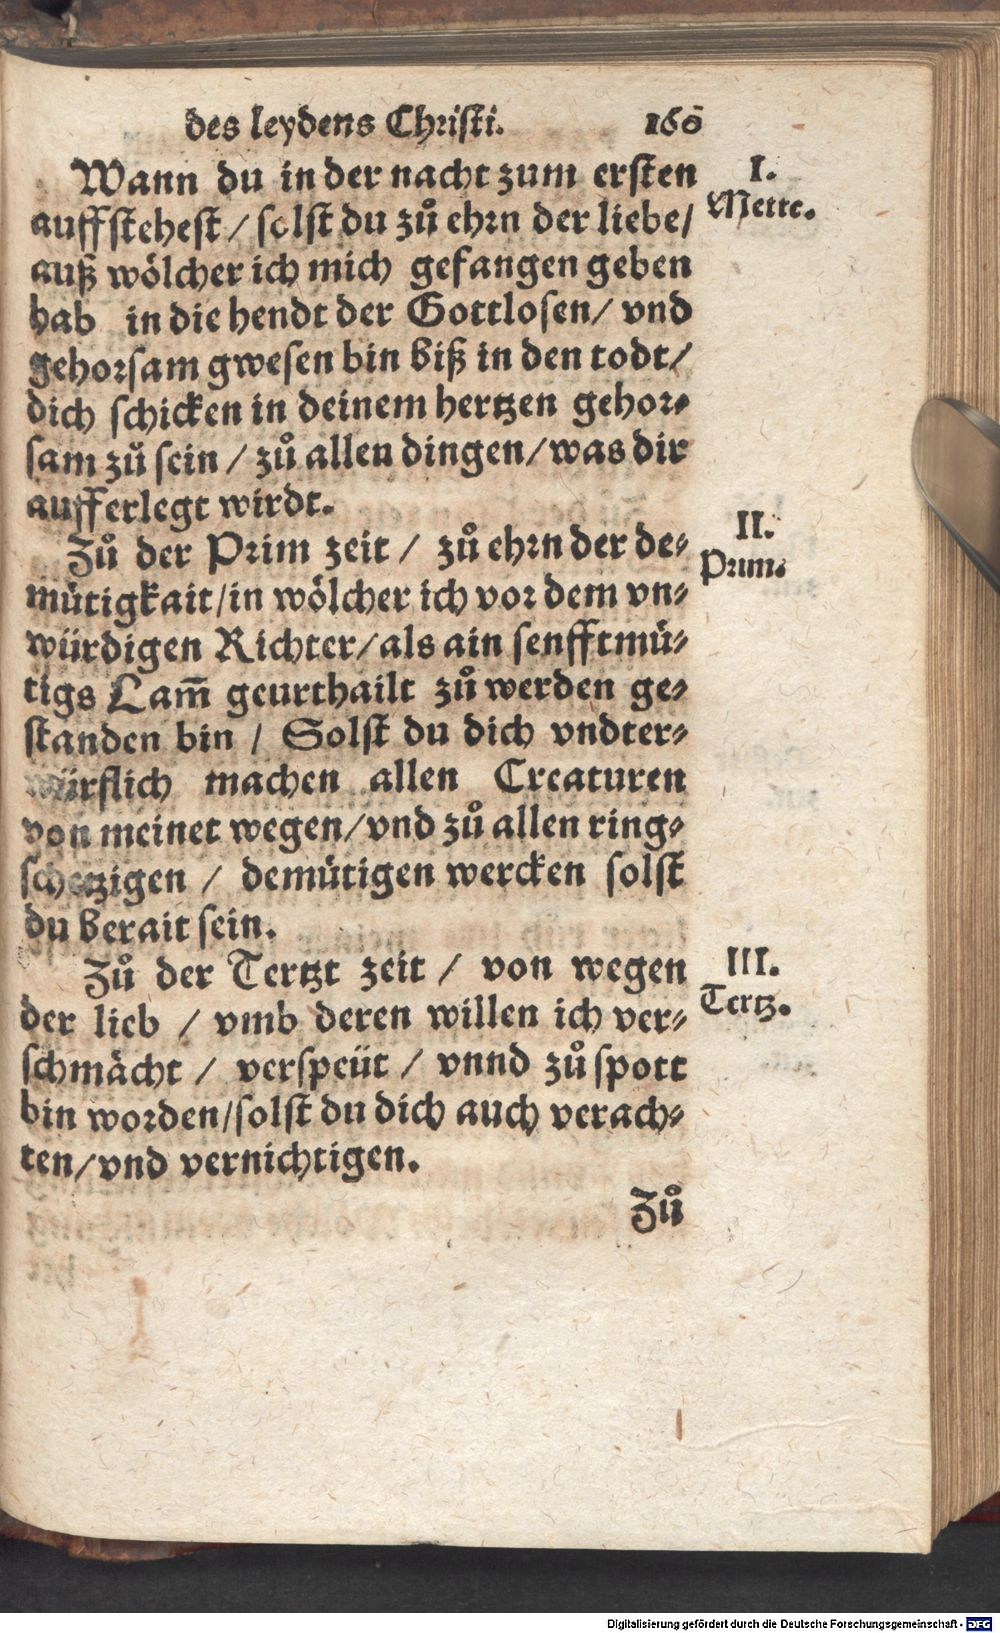 des leydens Christi. 160
Wann du in der nacht zum ersten
I.
Mette.
auffstehest / solst du zů ehrn der liebe/
auß wölcher ich mich gefangen geben
hab in die hendt der Gottlosen/ vnd
gehorsam gwesen bin biß in den todt/
dich schicken in deinem hertzen gehor⸗
sam zů sein / zů allen dingen/was dir
aufferlegt wirdt.
Zů der Prim zeit / zů ehrn der de⸗
II.
Prim.
mütigkait/in wölcher ich vor dem vn⸗
würdigen Richter/als ain senfftmü⸗
tigs Lam̃ geurthailt zů werden ge⸗
standen bin / Solst du dich vndter⸗
würflich machen allen Creaturen
von meinet wegen/vnd zů allen ring⸗
schetzigen / demütigen wercken solst
du berait sein.
Zů der Tertzt zeit / von wegen
III.
Tertz.
der lieb / vmb deren willen ich ver⸗
schmächt / verspeüt / vnnd zů spott
bin worden/solst du dich auch verach⸗
ten/vnd vernichtigen.
Zů
Digitalisierung gefördert durch die Deutsche Forschungsgemeinschaft - DFG